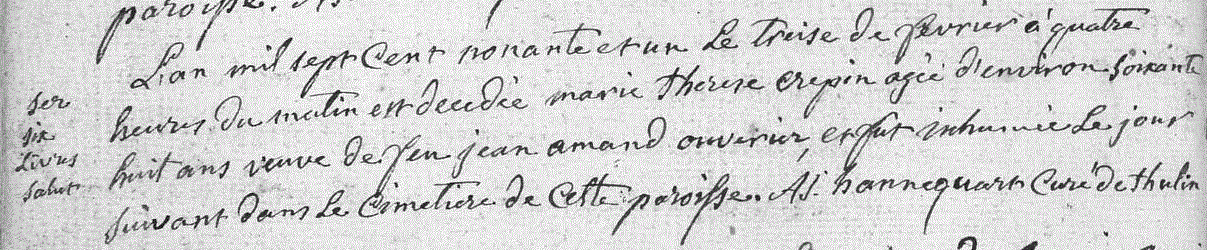 paroisse.
L'an mil sept Cent nonante et un Le treise de fevrier à quatre
heures du matin est decedée marie therese crepin agée d'environ soixante
huit ans veuve de feu jean amand ouverier, et fut inhumée Le jour
suivant dans Le Cimetiere de Cette paroisse. hannequart Curé de thulin
ser
six
Livres
salut